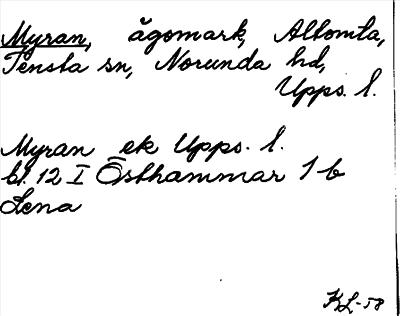 Myran, ägomark, Altomta,
Tensta sn, Norunda hd,
Upps. l.
Myran ek Upps. l.
bl. 12 I Östhammar 1 b
Lena
KL-58